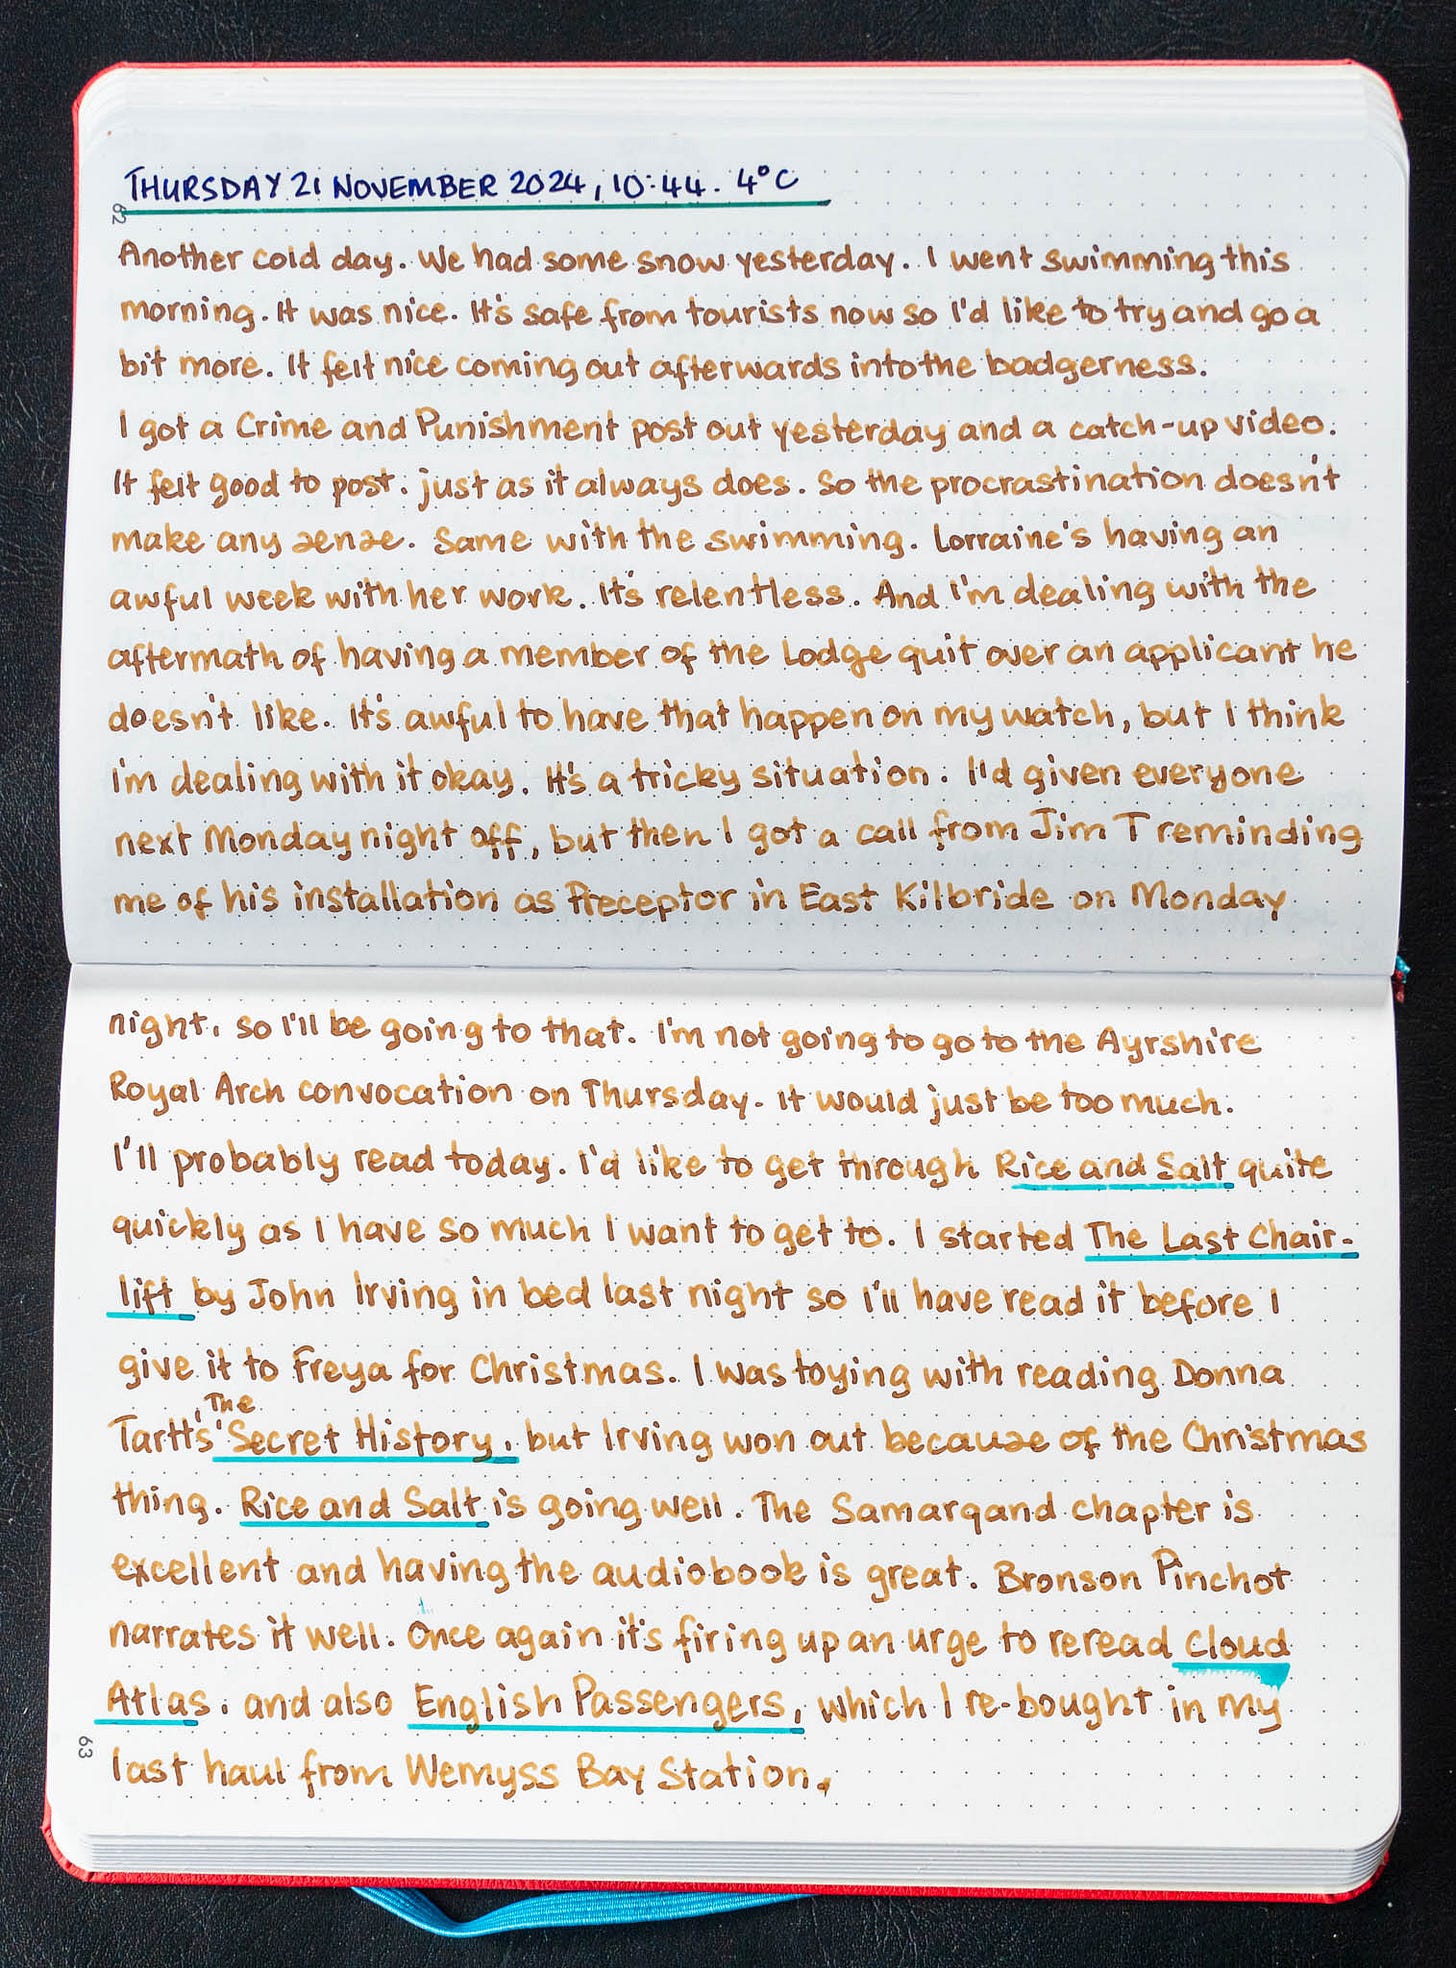 THURSDAY 21 NOVEMBER 2024, 10:44. 4°C
62
Another cold day. We had some snow yesterday. I went swimming this
morning. It was nice. It's safe from tourists now so I'd like to try and go a
bit more. It felt nice coming out afterwards into the badgerness.
I got a Crime and Punishment post out yesterday and a catch-up video.
It felt good to post, just as it always does. So the procrastination doesn't
make any sense. Same with the swimming. Lorraine's having an
awful week with her work. It's relentless. And I'm dealing with the
aftermath of having a member of the Lodge quit over an applicant he
doesn't like. It's awful to have that happen on my watch, but I think
I'm dealing with it okay. It's a tricky situation. I'd given everyone
next Monday night off, but then I got a call from Jim T reminding
me of his installation as Preceptor in East Kilbride on Monday
night, so I'll be going to that. I'm not going to go to the Ayrshire
Royal Arch convocation on Thursday. It would just be too much.
I'll probably read today. I'd like to get through Rice and Salt quite
quickly as I have so much I want to get to. I started The Last Chair-
lift by John Irving in bed last night so I'll have read it before I
give it to Freya for Christmas. I was toying with reading Donna
The
Tartt's Secret History, but Irving won out because of the Christmas
thing. Rice and Salt is going well. The Samarqand chapter is
excellent and having the audiobook is great. Bronson Pinchot
narrates it well. Once again it's firing up an urge to reread Cloud
Atlas, and also English Passengers, which I re-bought in my
last haul from Wemyss Bay Station.
63